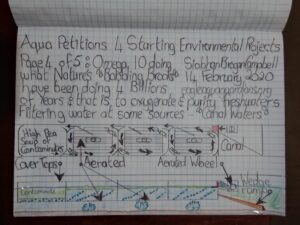 Aqua Petitions 4 Starting Environmental Projects
Page 4 of 5 : Omega 10 doing
Siobhan Breanacampbell
what Natures "Babbling Brooks"
14 February 2020
have been doing 4 Billions
of Years & that is, to oxygenate & purify freshwaters
Filtering water at some sources - Canal Waters
High Pea
Soup of
Contaminates
Canal
Cover Tops
Aerated
Aerated Wheel
Wedge
Ramp
Contaminate